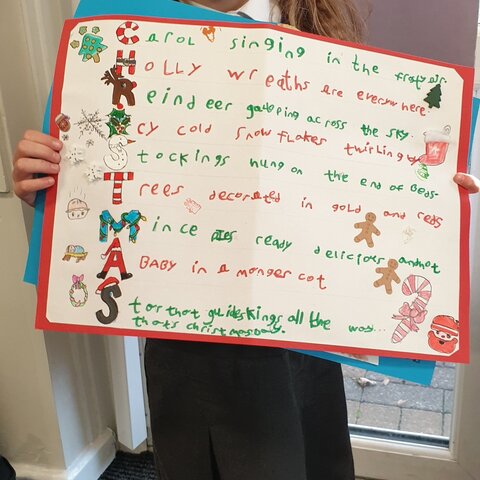 CAROL singing in the frosty air.
HOLLY wreaths are everywhere.
Reindeer galloping across the sky.
Icy cold snowflakes twirling by
Stockings hung on the end of beds.
Trees decorated in gold and reds
Mince pies ready delicious and hot
A BABY in a manger cot
Star that guides kings all the way...
thats christmas day.